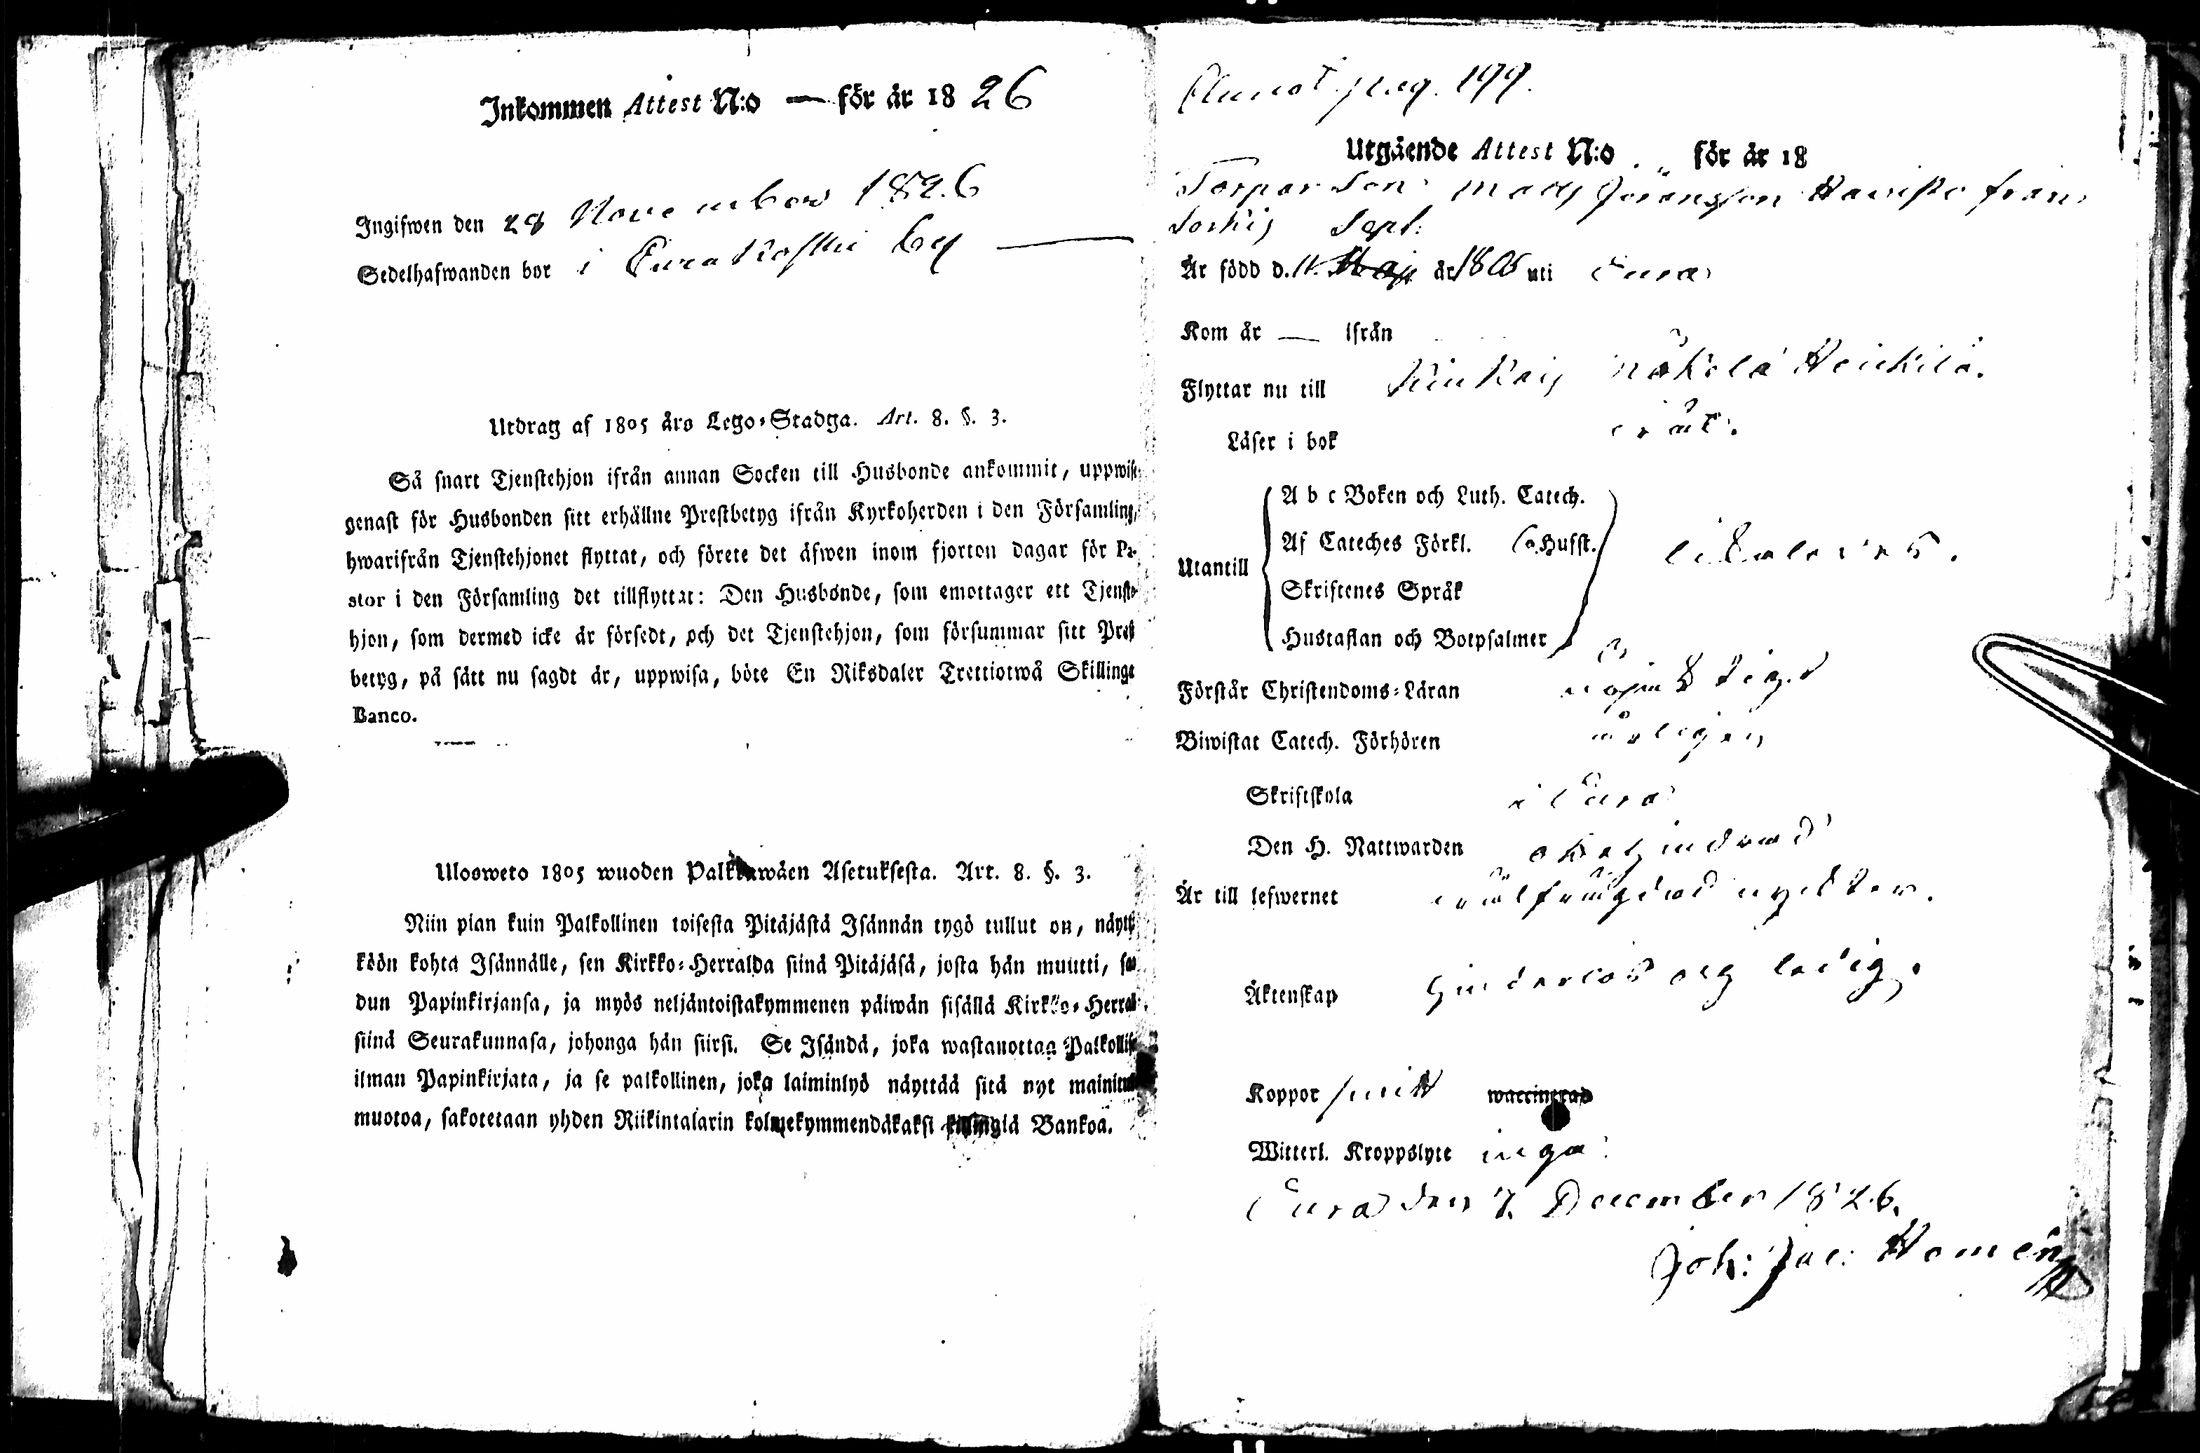 Inkommen Attest N:o — för år 1826
Ingifwen den 28 November 1826
Sedelhafwanden bor i Eurakoski by
Utdrag af 1805 års Lego-Stadga. Art. 8. §. 3.
Så snart Tjenstehjon ifrån annan Socken till Husbonde ankommit, uppwise
genast för Husbonden sitt erhållne Prestbetyg ifrån Kyrkoherden i den Församling,
hwarifrån Tjenstehjonet flyttat, och förete det äfwen inom fjorton dagar för Pa-
stor i den Församling det tillflyttat: Den Husbonde, som emottager ett Tjenste-
hjon, som dermed icke är försedt, och det Tjenstehjon, som försummar sitt Prest
betyg, på sätt nu sagdt är, uppwisa, böte En Riksdaler Trettiotwå Skillingar
Banco.
Ulosweto 1805 wuoden Palkkawäen Asetuksesta. Art. 8. §. 3.
Niin pian kuin Palkollinen toisesta Pitäjästä Isännän tygö tullut on, näyttä
köön kohta Isännälle, sen Kirkko-Herralda siinä Pitäjäsä, josta hän muutti, saa
dun Papinkirjansa, ja myös neljäntoistakymmenen päiwän sisällä Kirkko-Herral
siinä Seurakunnasa, johonga hän siirsi. Se Isändä, joka wastanottaa Palkollis
ilman Papinkirjata, ja se palkollinen, joka laiminlyö näyttää sitä nyt mainitus
muotoa, sakotetaan yhden Riikintalarin kolmekymmendäkaksi killingiä Bankoa.
Annot. pag. 199.
Utgående Attest N:o för år 18
Torpar Son Mats Jöransson från
Sorkis Sept:
Är född d. 11. Maji år 1806 uti Eura
Kom år — ifrån
Flyttar nu till Kiukais Näkölä Heickilä.
Läser i bok
Utantill
A b c Boken och Luth. Catech.
Af Cateches Förkl. Husst.
Skriftenes Språk
Hustaflan och Botpsalmer
likaledes.
Förstår Christendoms-Läran
Biwistat Catech. Förhören årligen
Skriftskola i Eura
Den H. Nattwarden
Är till lefwernet wälfrägdad nyckter.
Äktenskap hinderlös och ledig.
Koppor haft waccinerad
Witterl. Kroppslyte inga
Eura den 7. December 1826.
Joh: Jac: Homén